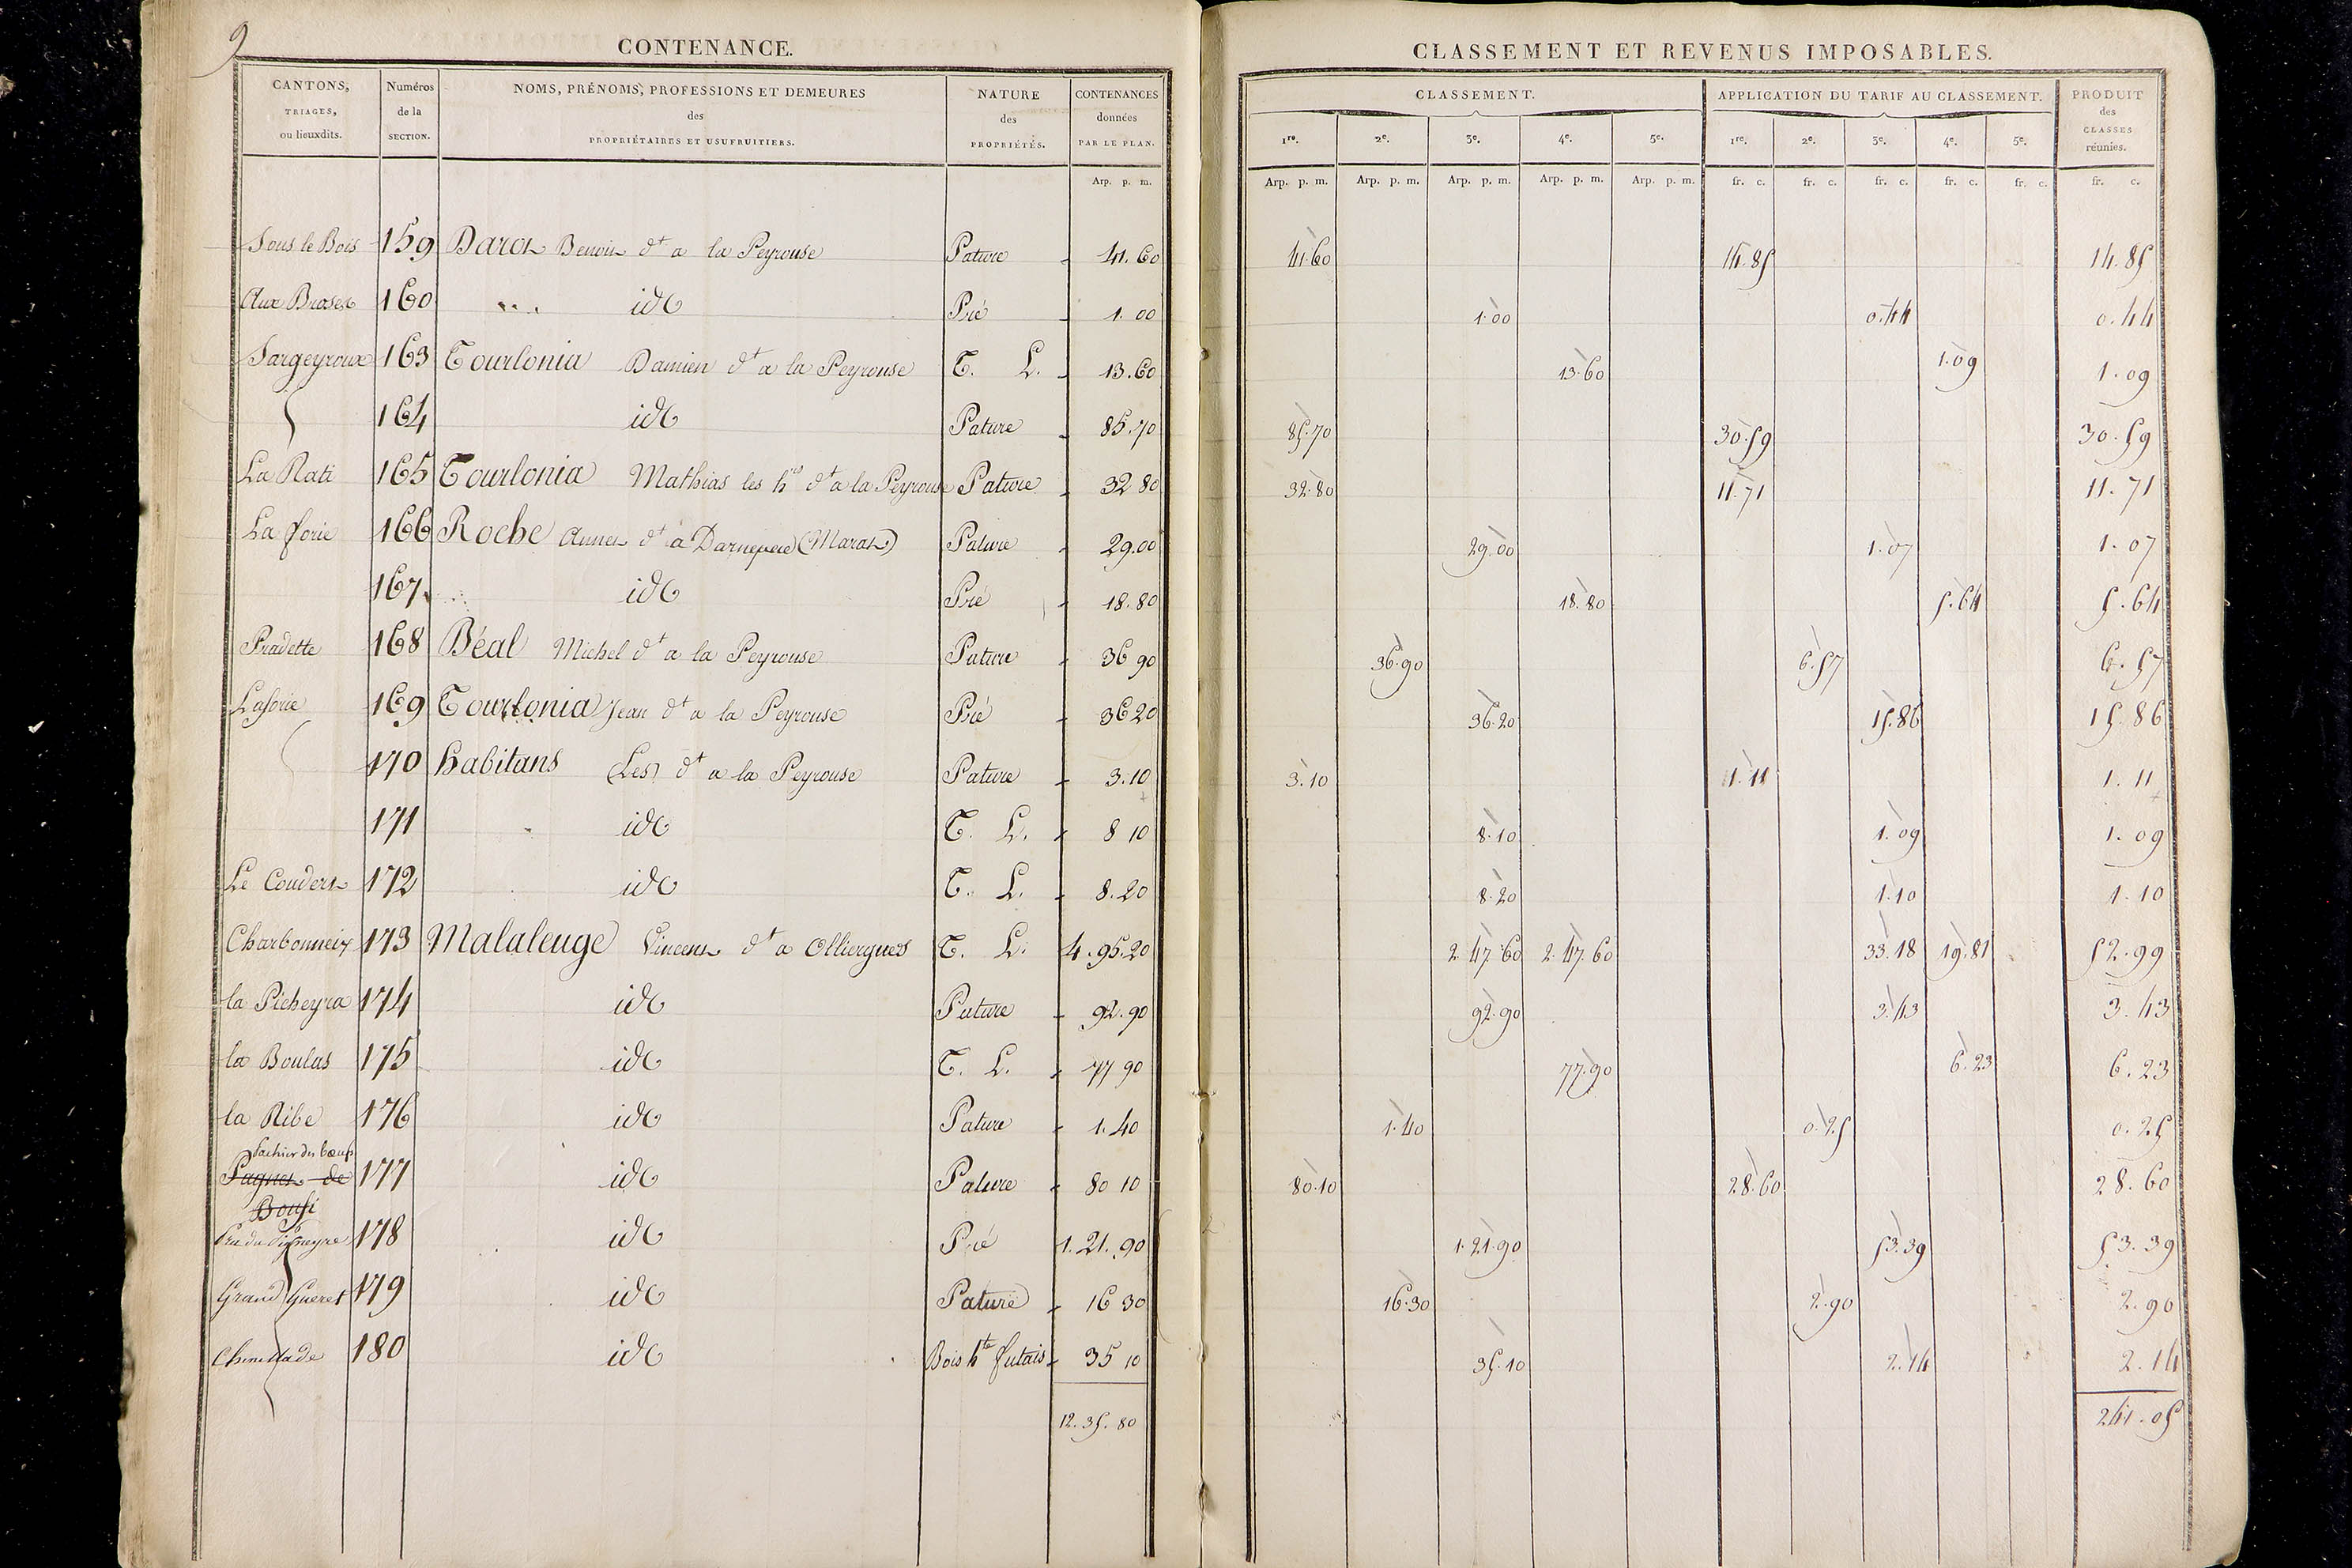 9
CONTENANCE.
CLASSEMENT ET REVENUS IMPOSABLES.
CANTONS, TRIAGES, ou lieuxdits.
Numéros de la SECTION.
NOMS, PRÉNOMS, PROFESSIONS ET DEMEURES des PROPRIÉTAIRES ET USUFRUITIERS.
NATURE des PROPRIÉTÉS.
CONTENANCES données PAR LE PLAN.
CLASSEMENT.
APPLICATION DU TARIF AU CLASSEMENT.
PRODUIT des CLASSES réunies.
1re. 2e. 3e. 4e. 5e. 1re. 2e. 3e. 4e. 5e.
Arp. p. m. Arp. p. m. Arp. p. m. Arp. p. m. Arp. p. m. Arp. p. m. fr. c. fr. c. fr. c. fr. c. fr. c. fr. c.
Sous le Bois 159 Darot Benoit dt a la Peyrouse Pature 41.60 41.60 14.85 14.85
Aux Brases 160 id Pré 1.00 1.00 0.44 0.44
Sargeyroux 163 Tourlonia Damien dt a la Peyrouse T. L. 13.60 13.60 1.09 1.09
164 id Pature 85.70 85.70 30.59 30.59
La Rati 165 Tourlonia Mathias les hrs dt a la Peyrouse Pature 32 80 32.80 11.71 11.71
La forie 166 Roche Annet dt a (Marat) Pature 29.00 29.00 1.07 1.07
167 id Pré 18.80 18.80 5.64 5.64
Pradette 168 Béal Michel dt a la Peyrouse Pature 36 90 36.90 6.57 6.57
Laforie 169 Tourlonia Jean dt a la Peyrouse Pré 36 20 36.20 15.86 15.86
170 habitans (Les) dt a la Peyrouse Pature 3.10 3.10 1.11 1.11
171 id T. L. 8 10 8.10 1.09 1.09
Le Coudert 172 id T. L. 8.20 8.20 1.10 1.10
Charbonneix 173 Malaleuge Vincent dt a Olliergues T. L. 4.95.20 2.47.60 2.47.60 33.18 19.81 52.99
la Picheyra 174 id Pature 92.90 92.90 3.43 3.43
la Boulas 175 id T. L. 77 90 77.90 6.23 6.23
la Ribe 176 id Pature 1.40 1.40 0.25 0.25
des bœufs
Pagnet de 177 id Pature 80 10 80.10 28.60 28.60
Boufi
178 id Pré 1.21.90 1.21.90 53.39 53.39
Grand Gueret 179 id Pature 16 30 16.30 2.90 2.90
180 id Bois hte futais 35 10 35.10 2.14 2.14
12.35.80 241.05